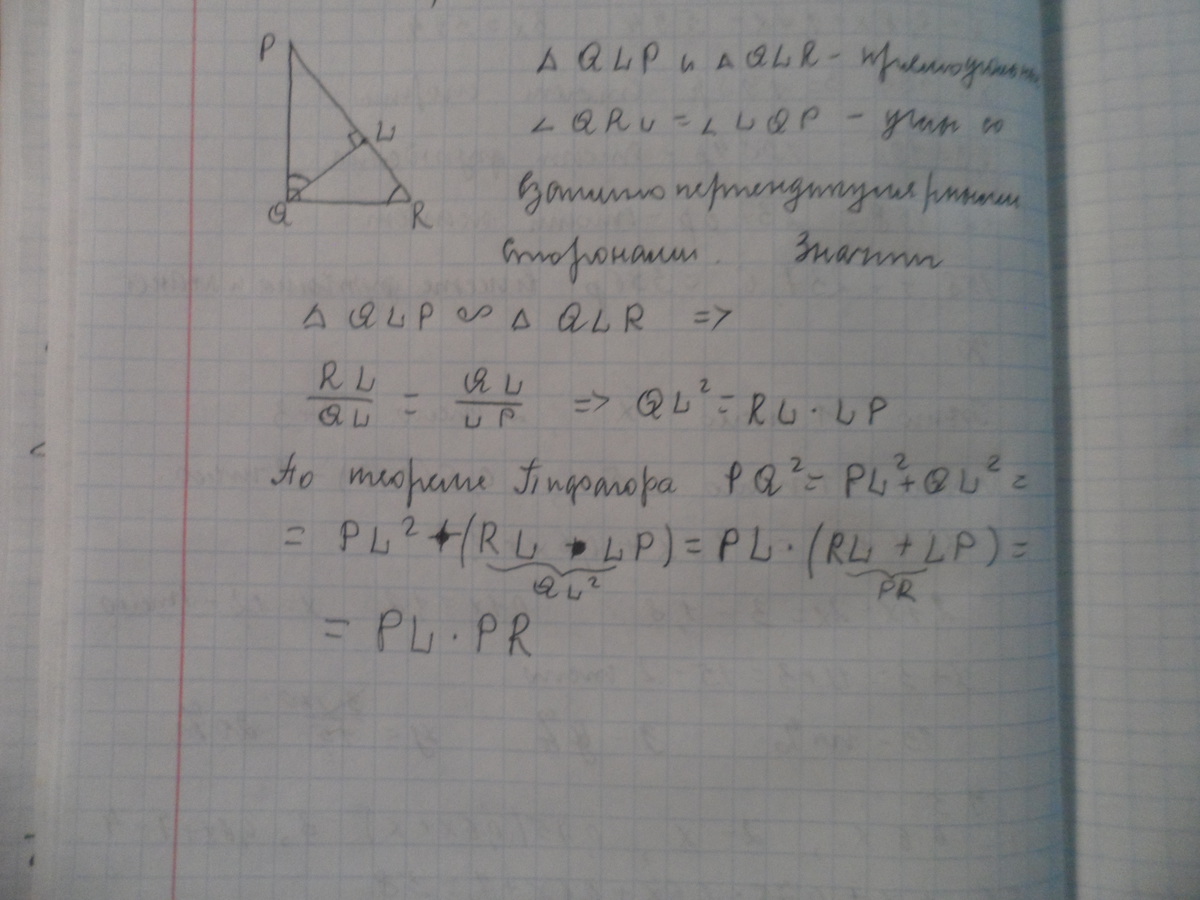 P
L
Q
R
△ QLP и △ QLR - прямоугольн
∠ QRL = ∠ LQP - углы со
взаимно перпендикулярными
сторонами. Значит
△ QLP ∾ △ QLR =>
RL/QL = QL/LP => QL² = RL · LP
По теореме Пифагора PQ² = PL² + QL² =
= PL² + (RL · LP) = PL · (RL + LP) =
QL² PR
= PL · PR